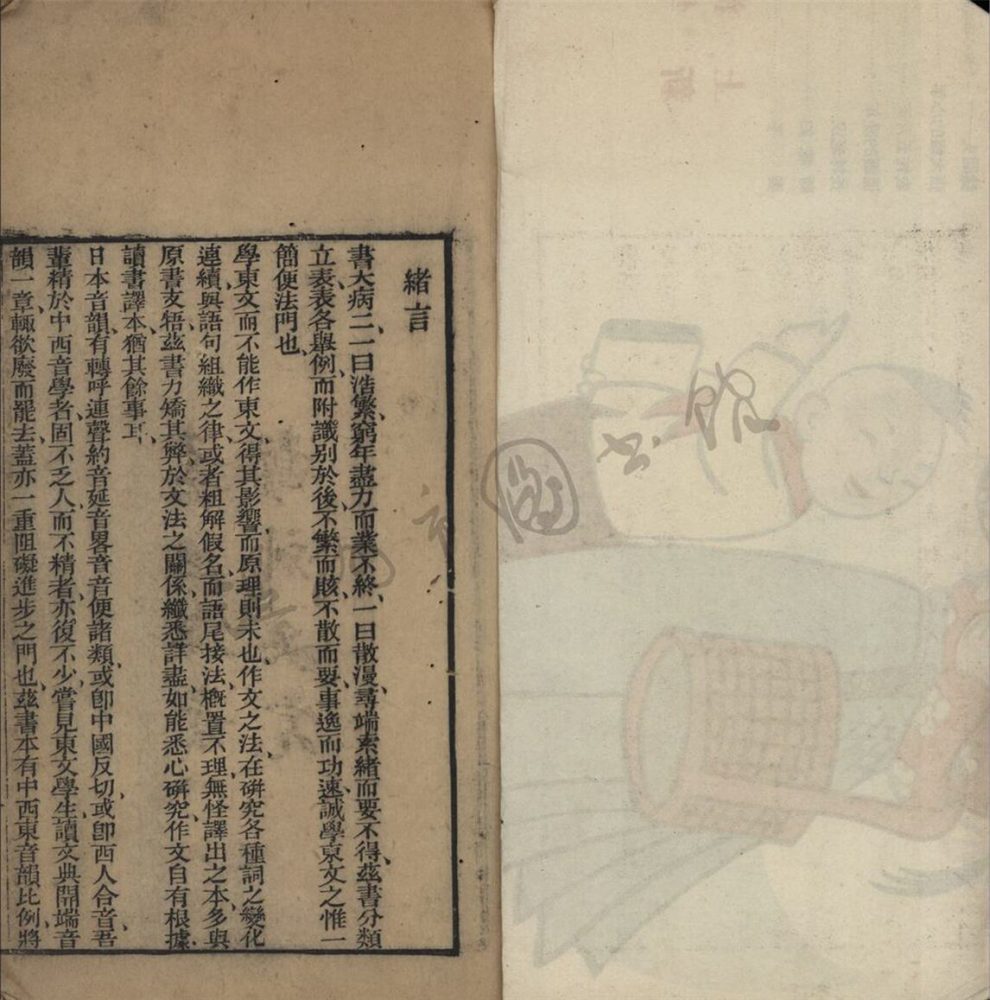 緒言
書大病二、一曰浩繁、窮年盡力而業不終、一曰散漫、尋端索緒而要不得、茲書分類
立表、表各舉例、而附識别於後、不繁而賅、不散而要、事逸而功速、誠學東文之惟一
簡便法門也、
學東文而不能作東文、得其影響而原理則未也、作文之法、在研究各種詞之變化
連續、與語句組織之律、或者粗解假名、而語尾接法、槪置不理、無怪譯出之本、多與
原書支牾、茲書力矯其弊、於文法之關係、纖悉詳盡、如能悉心研究、作文自有根據
讀書譯本、猶其餘事耳、
日本音韻、有轉呼連聲約音延音畧音音便諸類、或卽中國反切、或卽西人合音、吾
輩精於中西音學者、固不乏人、而不精者、亦復不少、嘗見東文學生、讀文典開端音
韻一章、輒欲廢而罷去、蓋亦一重阻礙進步之門也、茲書本有中西東音韻比例、將
圖書館